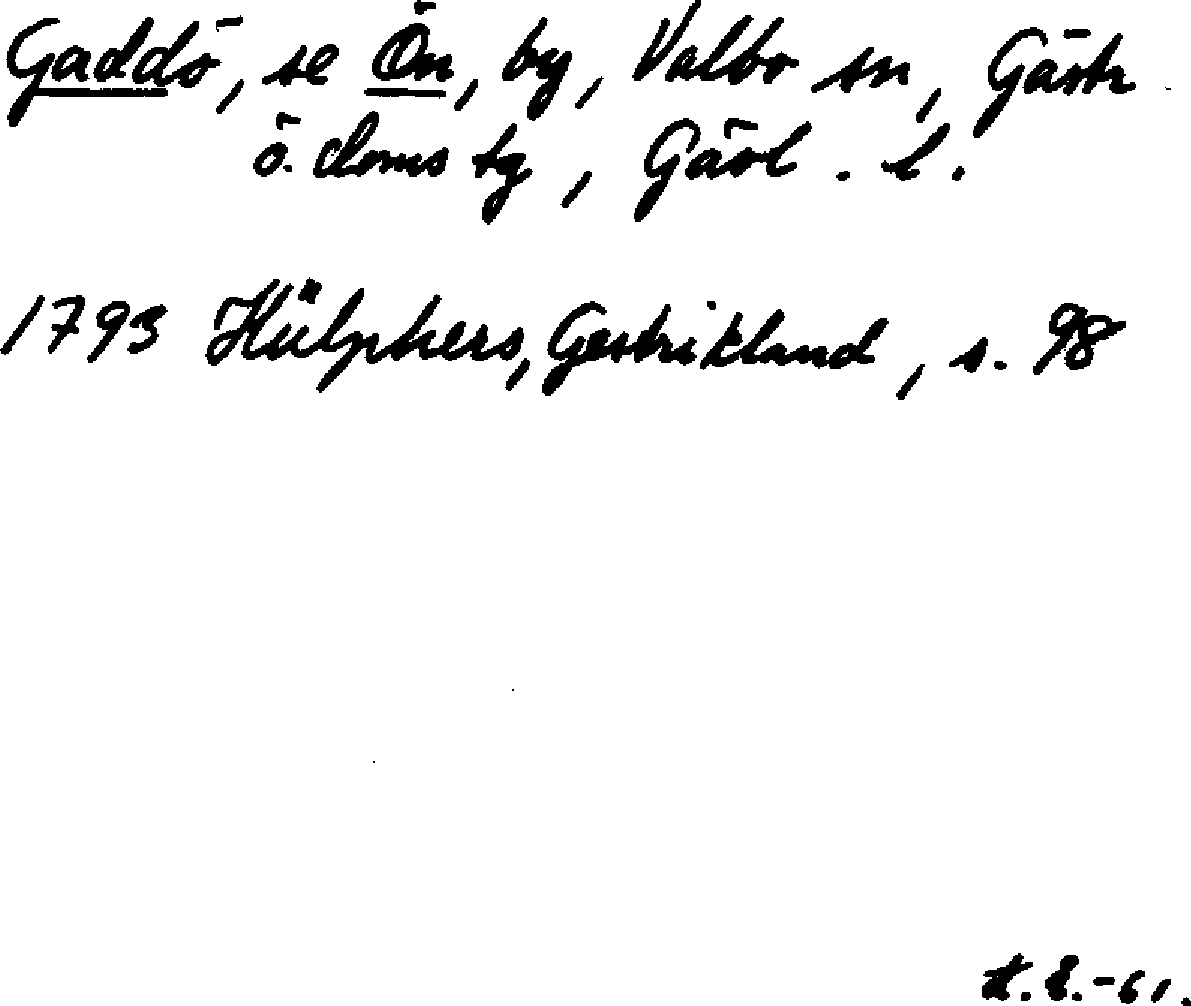 Gaddö, se Ön, by, Valbo sn, Gästr
ö. doms tg, Gävl. l.
1793 Hülphers, Gestrikland, s. 98